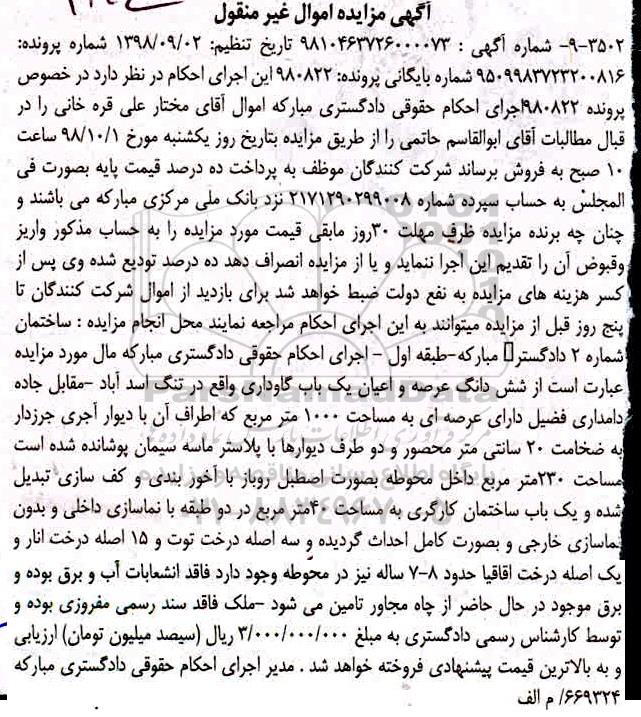 آگهی مزایده اموال غیر منقول
۹-۳۵۰۲- شماره آگهی : ۹۸۱۰۴۶۳۷۲۶۰۰۰۰۷۳ تاریخ تنظیم: ۱۳۹۸/۰۹/۰۲ شماره پرونده:
۹۵۰۹۹۸۳۷۲۳۲۰۰۸۱۶ شماره بایگانی پرونده: ۹۸۰۸۲۲ این اجرای احکام در نظر دارد در خصوص
پرونده ۹۸۰۸۲۲اجرای احکام حقوقی دادگستری مبارکه اموال آقای مختار علی قره خانی را در
قبال مطالبات آقای ابوالقاسم حاتمی را از طریق مزایده بتاریخ روز یکشنبه مورخ ۹۸/۱۰/۱ ساعت
۱۰ صبح به فروش برساند شرکت کنندگان موظف به پرداخت ده درصد قیمت پایه بصورت فی
المجلس به حساب سپرده شماره ۲۱۷۱۲۹۰۲۹۹۰۰۸ نزد بانک ملی مرکزی مبارکه می باشند و
چنان چه برنده مزایده ظرف مهلت ۳۰روز مابقی قیمت مورد مزایده را به حساب مذکور واریز
وقبوض آن را تقدیم این اجرا ننماید و یا از مزایده انصراف دهد ده درصد تودیع شده وی پس از
کسر هزینه های مزایده به نفع دولت ضبط خواهد شد برای بازدید از اموال شرکت کنندگان تا
پنج روز قبل از مزایده میتوانند به این اجرای احکام مراجعه نمایند محل انجام مزایده : ساختمان
شماره ۲ دادگستر مبارکه-طبقه اول - اجرای احکام حقوقی دادگستری مبارکه مال مورد مزایده
عبارت است از شش دانگ عرصه و اعیان یک باب گاوداری واقع در تنگ اسد آباد -مقابل جاده
دامداری فضیل دارای عرصه ای به مساحت ۱۰۰۰ متر مربع که اطراف آن با دیوار آجری جرزدار
به ضخامت ۲۰ سانتی متر محصور و دو طرف دیوارها با پلاستر ماسه سیمان پوشانده شده است
مساحت ۲۳۰متر مربع داخل محوطه بصورت اصطبل روباز با آخور بندی و کف سازی تبدیل
شده و یک باب ساختمان کارگری به مساحت ۴۰متر مربع در دو طبقه با نماسازی داخلی و بدون
نماسازی خارجی و بصورت کامل احداث گردیده و سه اصله درخت توت و ۱۵ اصله درخت انار و
یک اصله درخت اقاقیا حدود ۸-۷ ساله نیز در محوطه وجود دارد فاقد انشعابات آب و برق بوده و
برق موجود در حال حاضر از چاه مجاور تامین می شود -ملک فاقد سند رسمی مفروزی بوده و
توسط کارشناس رسمی دادگستری به مبلغ ۳/۰۰۰/۰۰۰/۰۰۰ ریال (سیصد میلیون تومان) ارزیابی
و به بالاترین قیمت پیشنهادی فروخته خواهد شد . مدیر اجرای احکام حقوقی دادگستری مبارکه
۶۶۹۳۲۴/ م الف
ParsNamadData